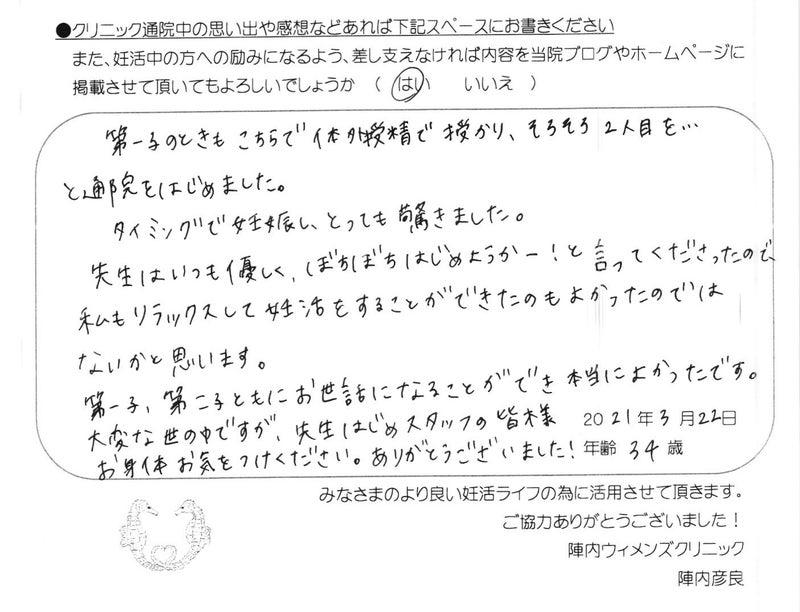 ●クリニック通院中の思い出や感想などあれば下記スペースにお書きください
また、妊活中の方への励みになるよう、差し支えなければ内容を当院ブログやホームページに
掲載させて頂いてもよろしいでしょうか （ はい いいえ ）
第一子のときも こちらで 体外授精で 授かり、そろそろ 2人目を…
と通院をはじめました。
タイミングで妊娠し、とっても驚きました。
先生はいつも優しく、ぼちぼちはじめようかー！と言ってくださったので
私もリラックスして妊活をすることができたのもよかったのでは
ないかと思います。
第一子、第二子ともにお世話になることができ本当によかったです。
大変な世の中ですが、先生はじめスタッフの皆様
2021年3月22日
お身体お気をつけください。ありがとうございました！
年齢 34歳
みなさまのより良い妊活ライフの為に活用させて頂きます。
ご協力ありがとうございました！
陣内ウィメンズクリニック
陣内彦良